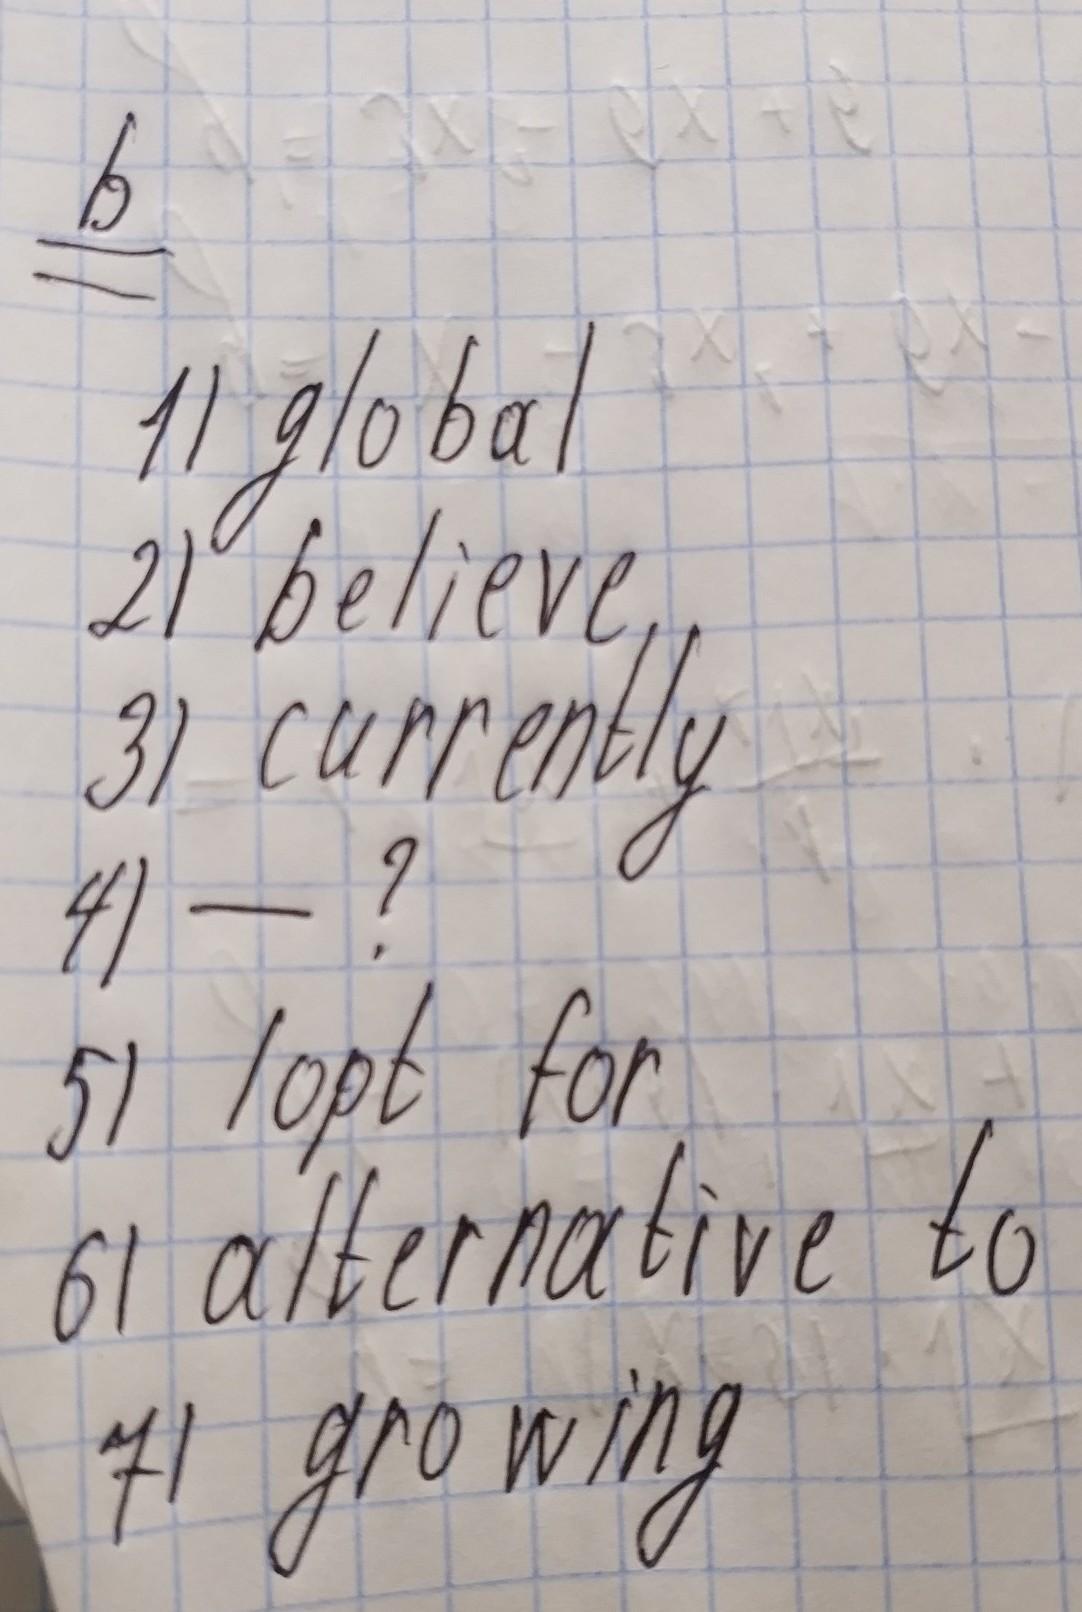 b
1) global
2) believe
3) currently
4) — ?
5) lopt for
6) alternative to
7) growing